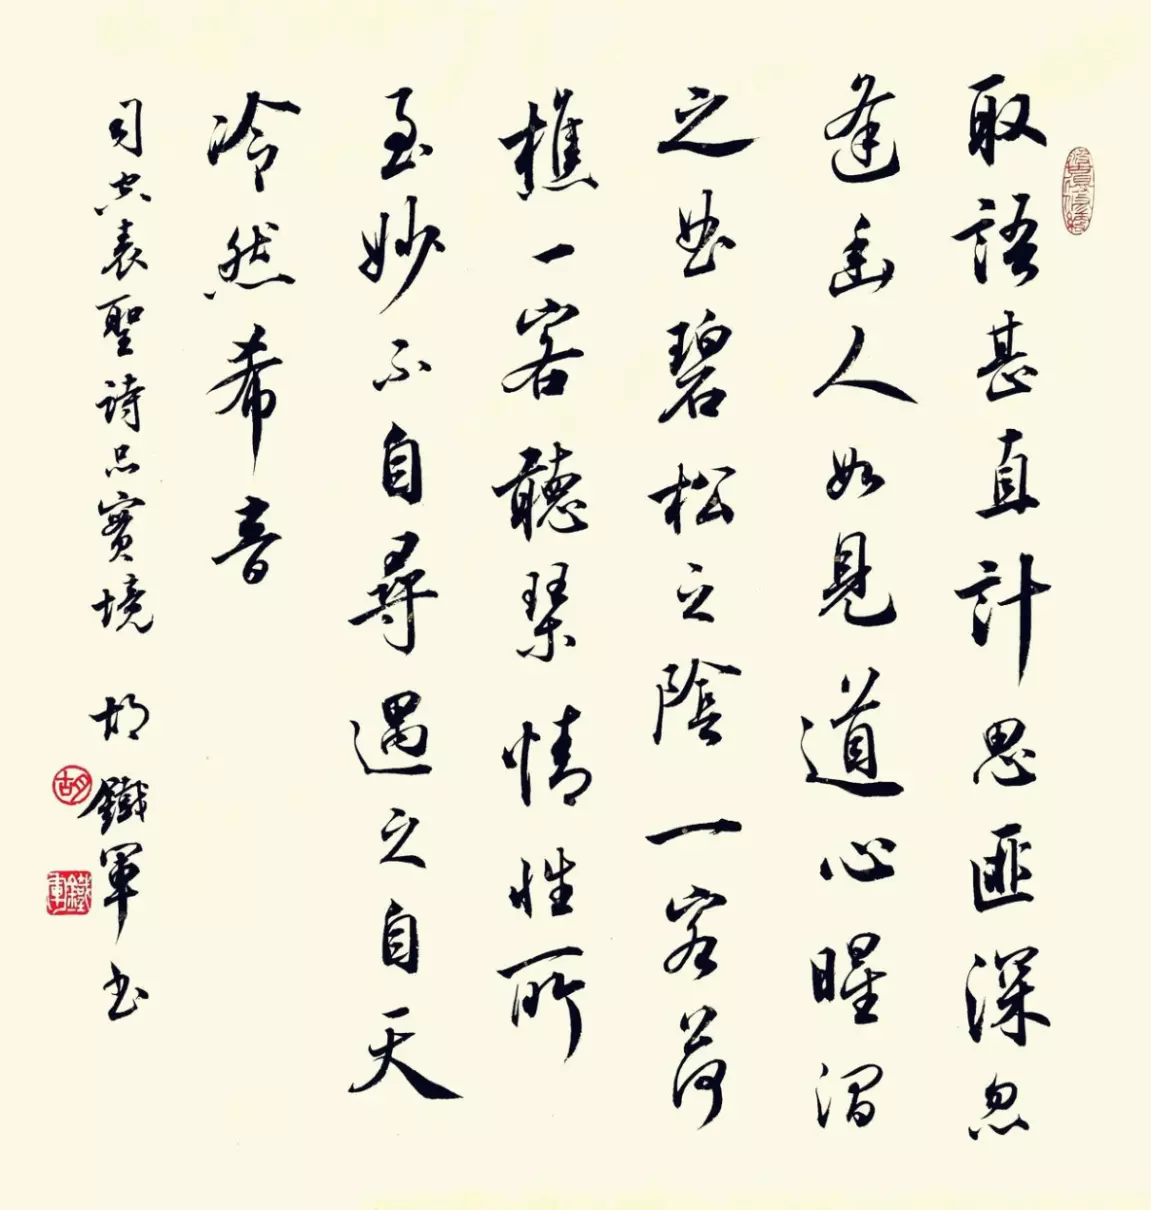 取語甚直計思匪深忽
逢幽人如見道心暒澗
之曲碧松之陰一客荷
樵一客聽琴情性所
至妙不自尋遇之自天
泠然希音
司空表聖詩品實境 胡鐵軍书
胡
鐵軍